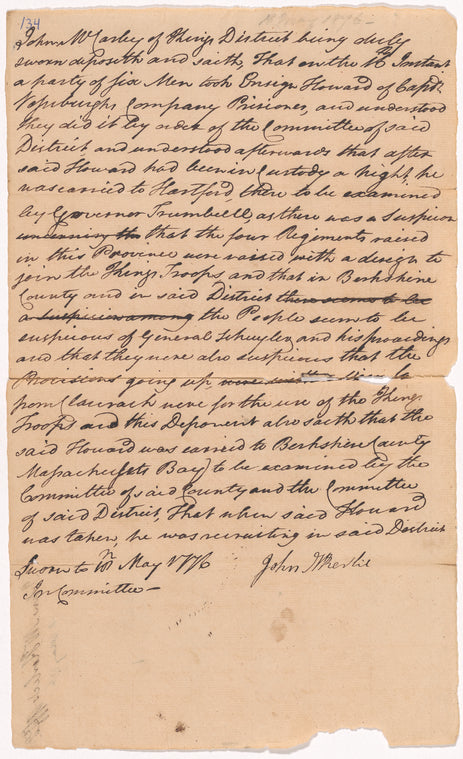 134
John McCarley of Things District being duly
sworn deposeth and saith, That on the Instant
a party of six Men took Ensign Howard of Capt.
Company Prisoner, and understood
they did it by order of the Committee of said
District and understood afterwards that after
said Howard had been in Custody a night, he
was carried to Hartford, there to be examined
by Governor Trumbell, as there was a Suspicion
concerning the that the four Regiments raised
in this Province were raised with a design to
join the Things Troops and that in Berkshire
County and in said District there seems to be
a suspicion among the People seem to be
suspicious of General Schuyler, and his proceedings
and that they were also suspicious that the
Provisions going up were
from Claverack were for the use of the Things
Troops and this Deponent also saith that the
said Howard was carried to Berkshire County
Massachusets Bay) to be examined by the
Committee of said County and the Committee
of said District, That when said Howard
was taken, he was recruiting in said District
Sworn to May 1776 John
In Committee —